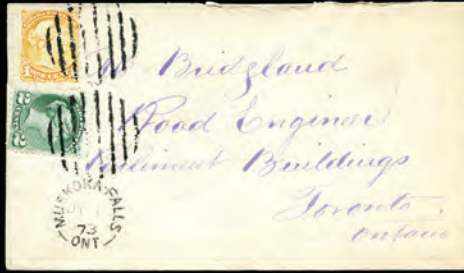 Mr Bridgland
Road Engineer
Parliment Buildings
Toronto
Ontario
MUSKOKA-FALLS
73
ONT